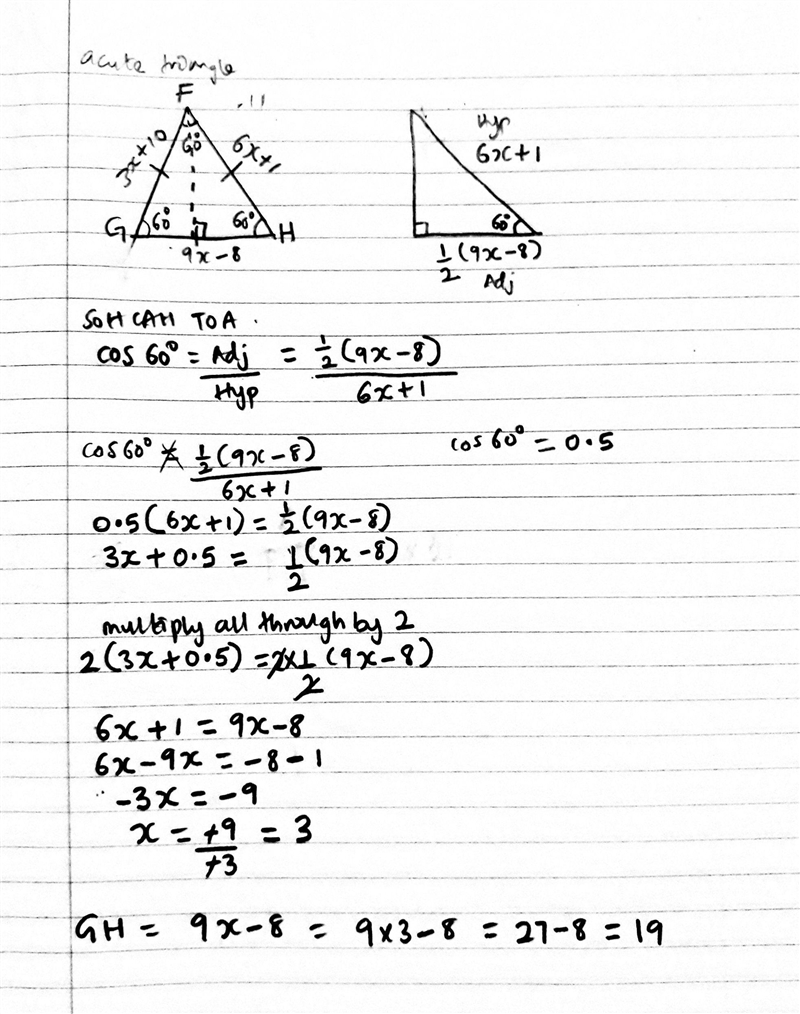 acute triangle
F
3x+10
60°
6x+1
G
60°
60°
H
9x-8
Hyp
6x+1
60°
1/2 (9x-8)
Adj
SOH CAH TOA.
cos 60° = Adj/Hyp = 1/2(9x-8)/6x+1
cos 60° = 1/2(9x-8)/6x+1
cos 60° = 0.5
0.5(6x+1) = 1/2(9x-8)
3x+0.5 = 1/2(9x-8)
multiply all through by 2
2(3x+0.5) = 2×1/2(9x-8)
6x+1 = 9x-8
6x-9x = -8-1
-3x = -9
x = +9/+3 = 3
GH = 9x-8 = 9×3-8 = 27-8 = 19